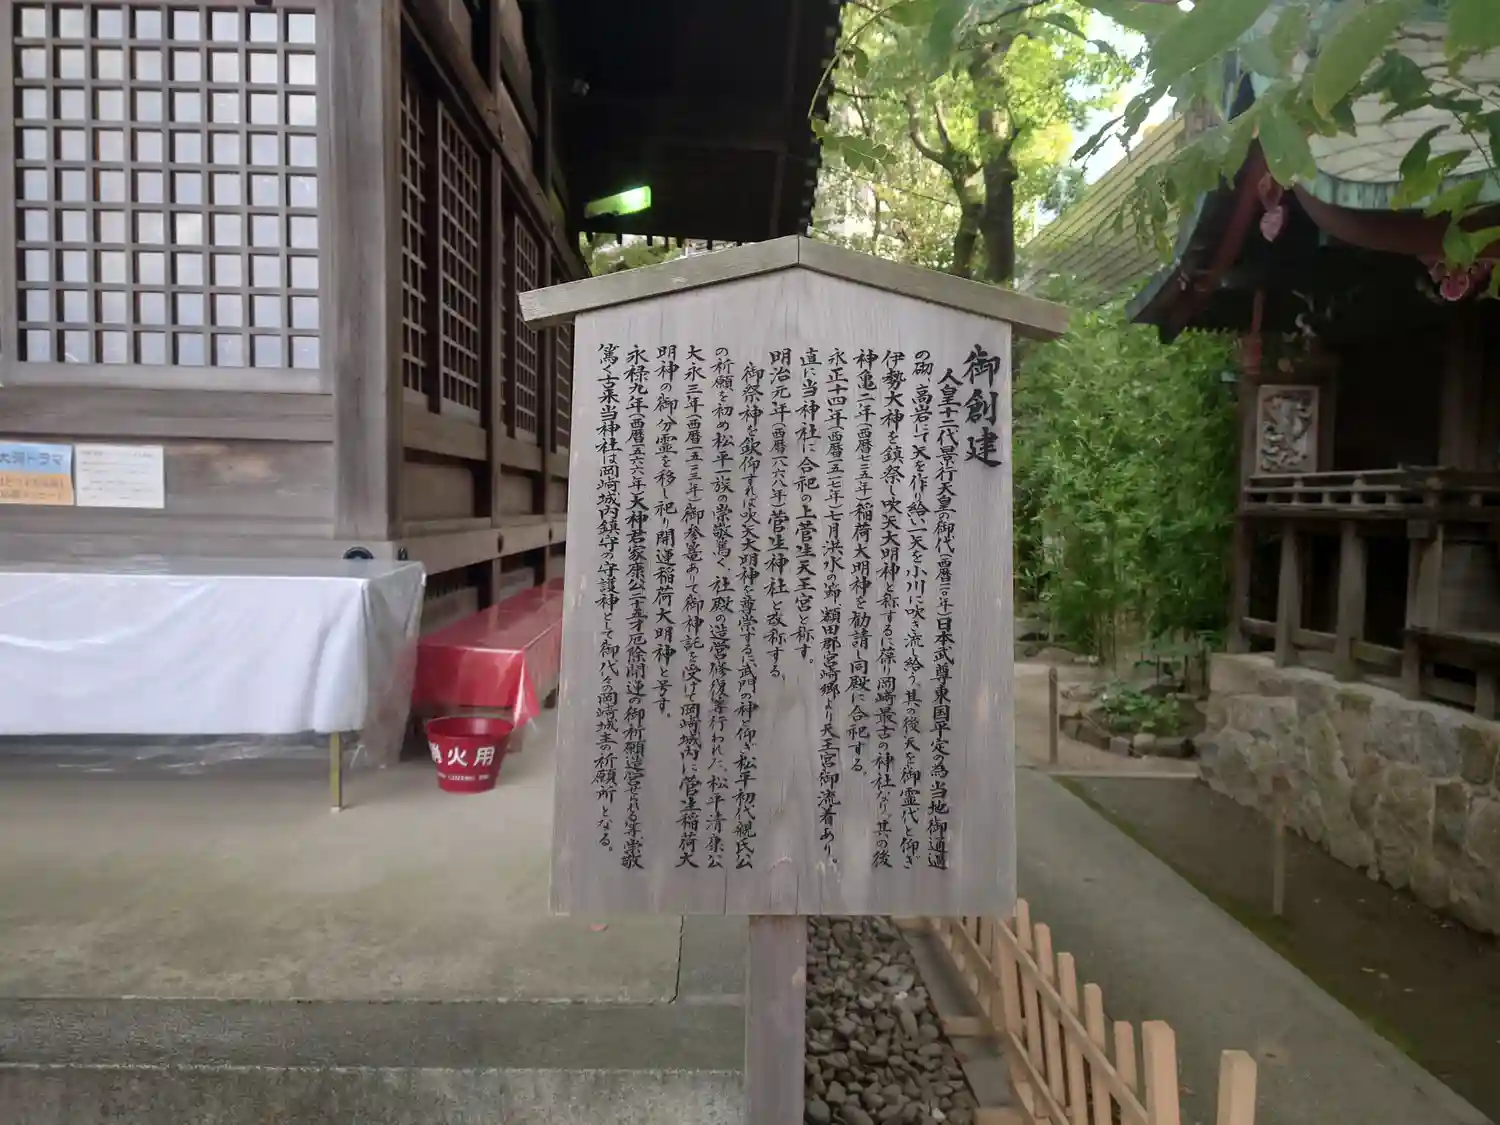 御創建
人皇十二代景行天皇の御代(西暦一一〇年)日本武尊東国平定の為当地御通過
の砌、高岩にて矢を作り給い一矢を小川に吹き流し給う。其の後矢を御霊代と仰ぎ
伊勢大神を鎮祭し吹矢大明神と称するに葆り岡崎最古の神社なり。其の後
神亀二年(西暦七三五年)稲荷大明神を勧請し同殿に合祀する。
永正十四年(西暦一五一七年)七月洪水の節、額田郡宮崎郷より天王宮御流着あり、
直に当神社に合祀の上菅生天王宮と称す。
明治元年(西暦一八六八年)菅生神社と改称する。
御祭神を欽仰すれば吹矢大明神を尊崇するに武門の神と仰ぎ松平初代親氏公
の祈願を初め松平一族の崇敬篤く、社殿の造営修復等行われた。松平清康公
大永三年(西暦一五二三年)御参篭ありて御神託を受けて岡崎城内に菅生稲荷大
明神の御分霊を移し祀り開運稲荷大明神と号す。
永禄九年(西暦一五六六年)大神君家康公二十五才厄除開運の御祈願造営せられる等崇敬
篤く古来当神社は岡崎城内鎮守の守護神として御代々の岡崎城主の祈願所となる。
大河ドラマ
消火用